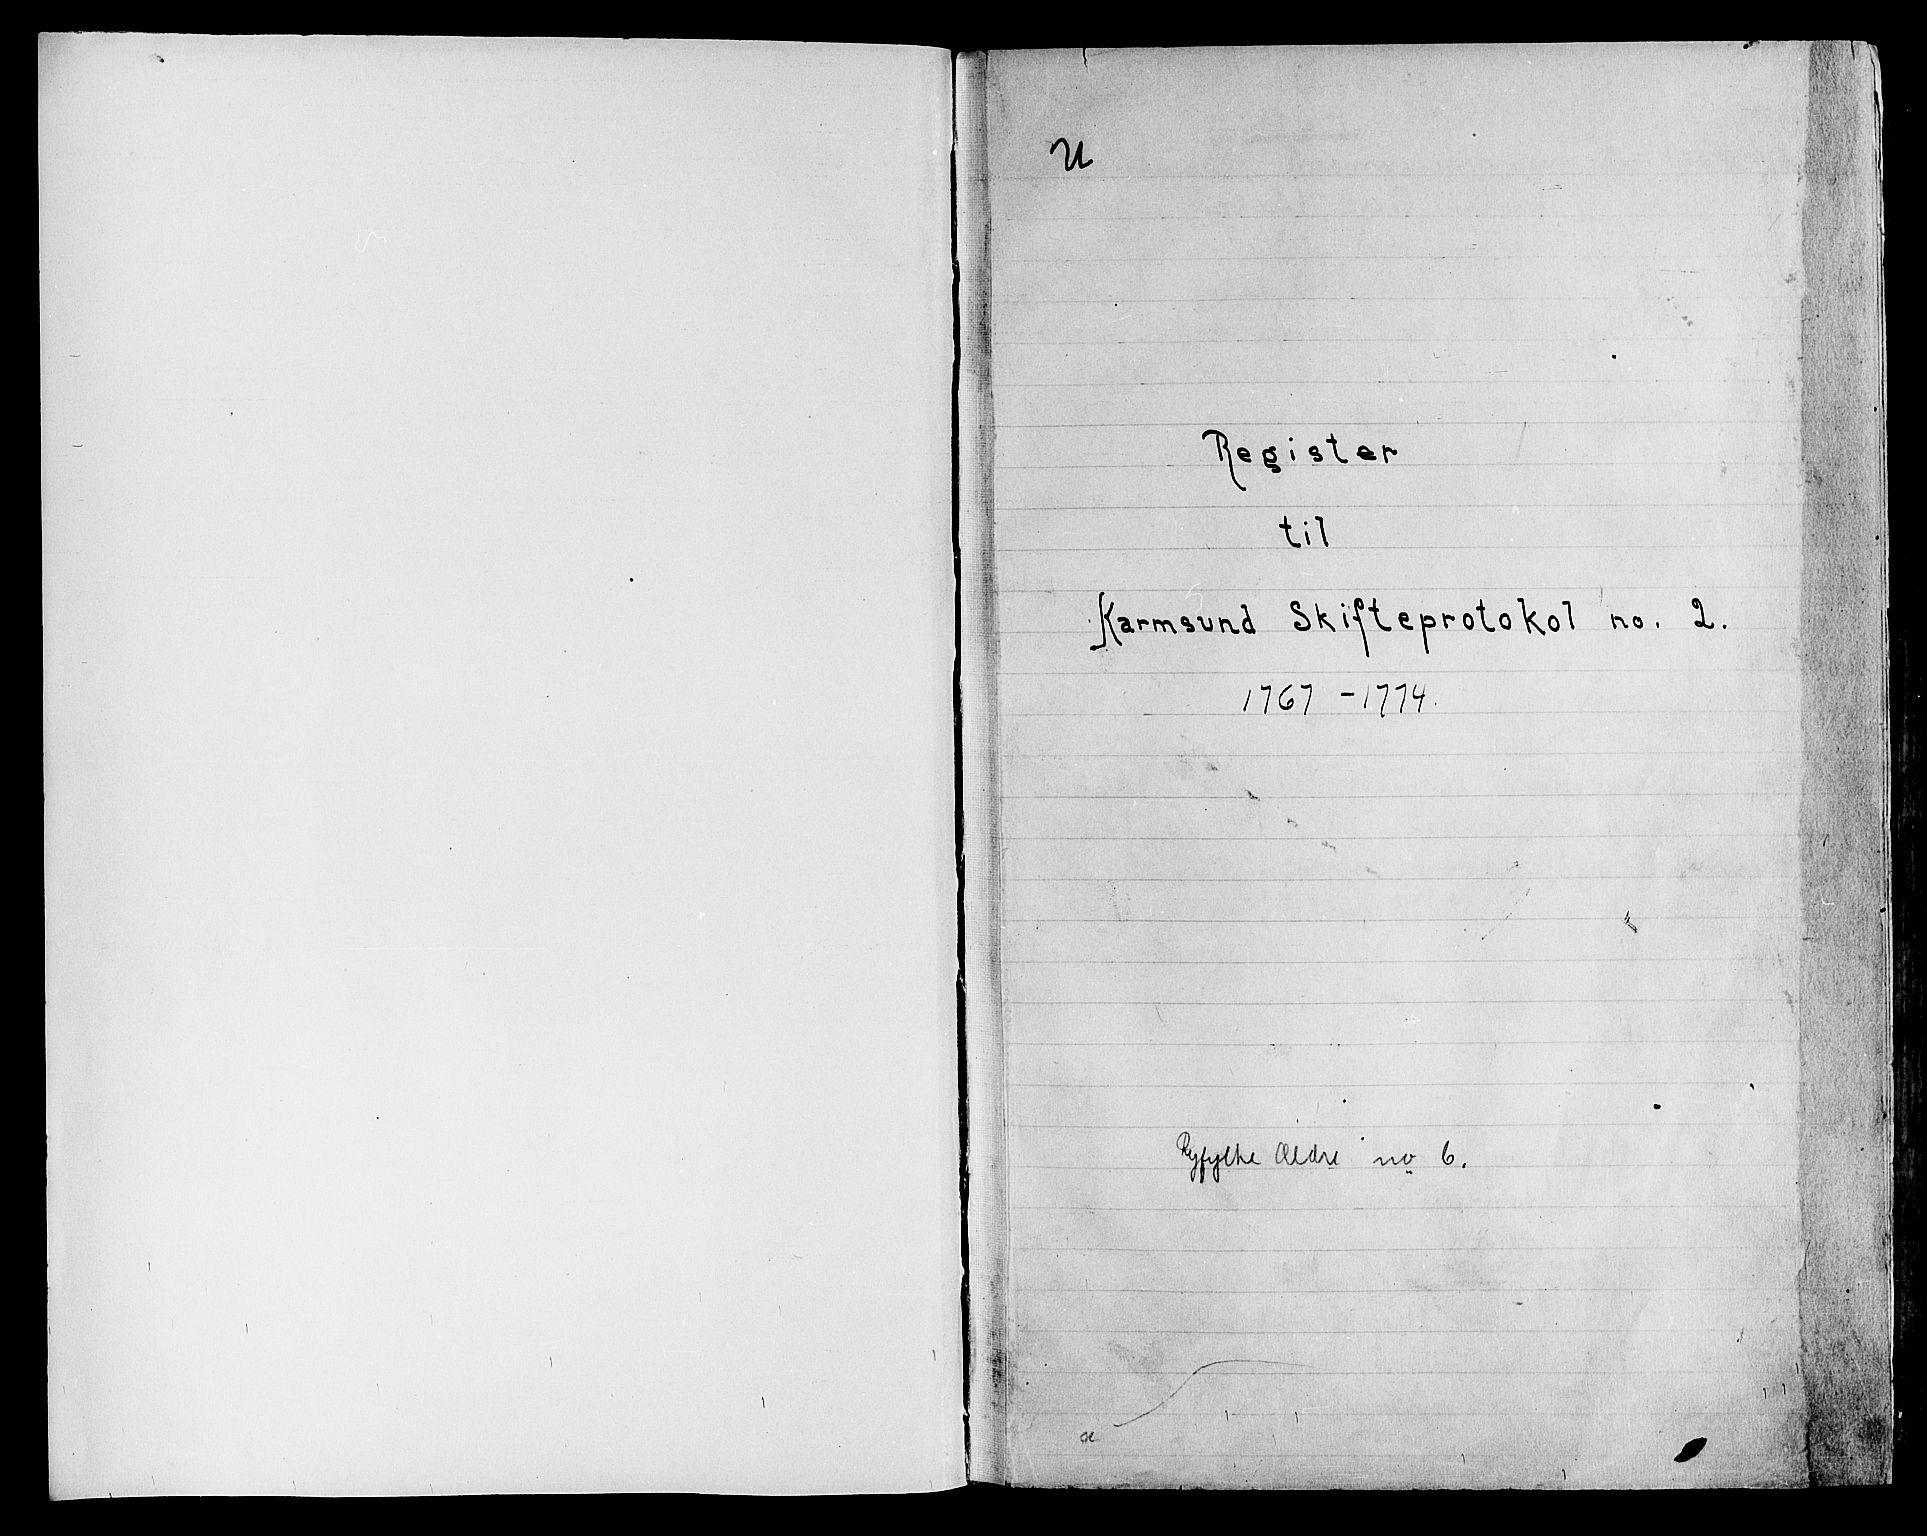 U
Register
til
Karmsund Skifteprotokol no. 2.
1767 - 1774.
Ryfylke Ældre no 6.